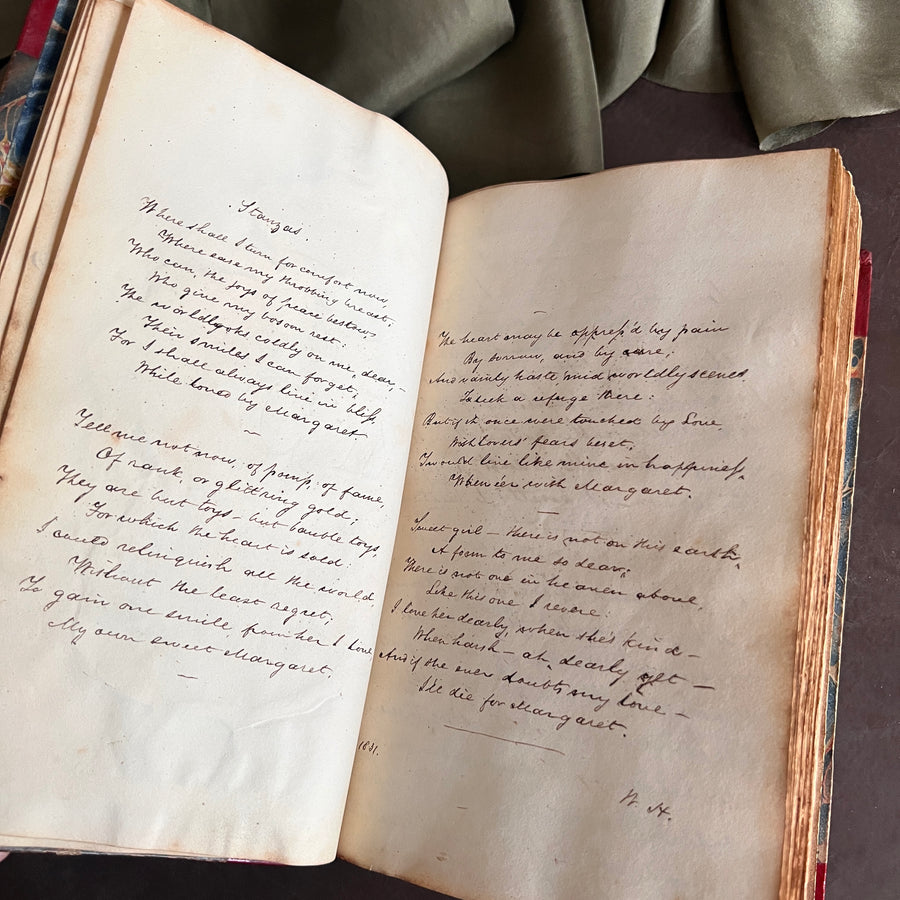 Stanzas.
Where shall I turn for comfort now,
Where ease my throbbing breast;
Who can, the joys of peace bestow?
Who give my bosom rest:
The world looks coldly on me, dear, –
Their smiles I can forget,
For I shall always live in bliss,
While loved by Margaret
Tell me not now, of pomp, of fame,
Of rank, or glitt'ring gold;
They are but toys – but bauble toys,
For which the heart is sold:
I could relinquish all the world,
Without the least regret,
To gain one smile, from her I love
My own sweet Margaret.
1831.
The heart may be oppress'd by pain
By sorrow, and by care;
And vainly haste 'mid worldly scenes
To seek a refuge there:
But if it once were touched by Love,
With lovers' fears beset,
'Twould live like mine in happiness,
Whene'er with Margaret.
Sweet girl – there is not on this earth,
A form to me so dear,
There is not one in heaven above,
Like this one I revere:
I love her dearly, when she's kind –
When harsh – ah, dearly yet –
And if she ever doubts my love –
I'll die for Margaret.
W. H.